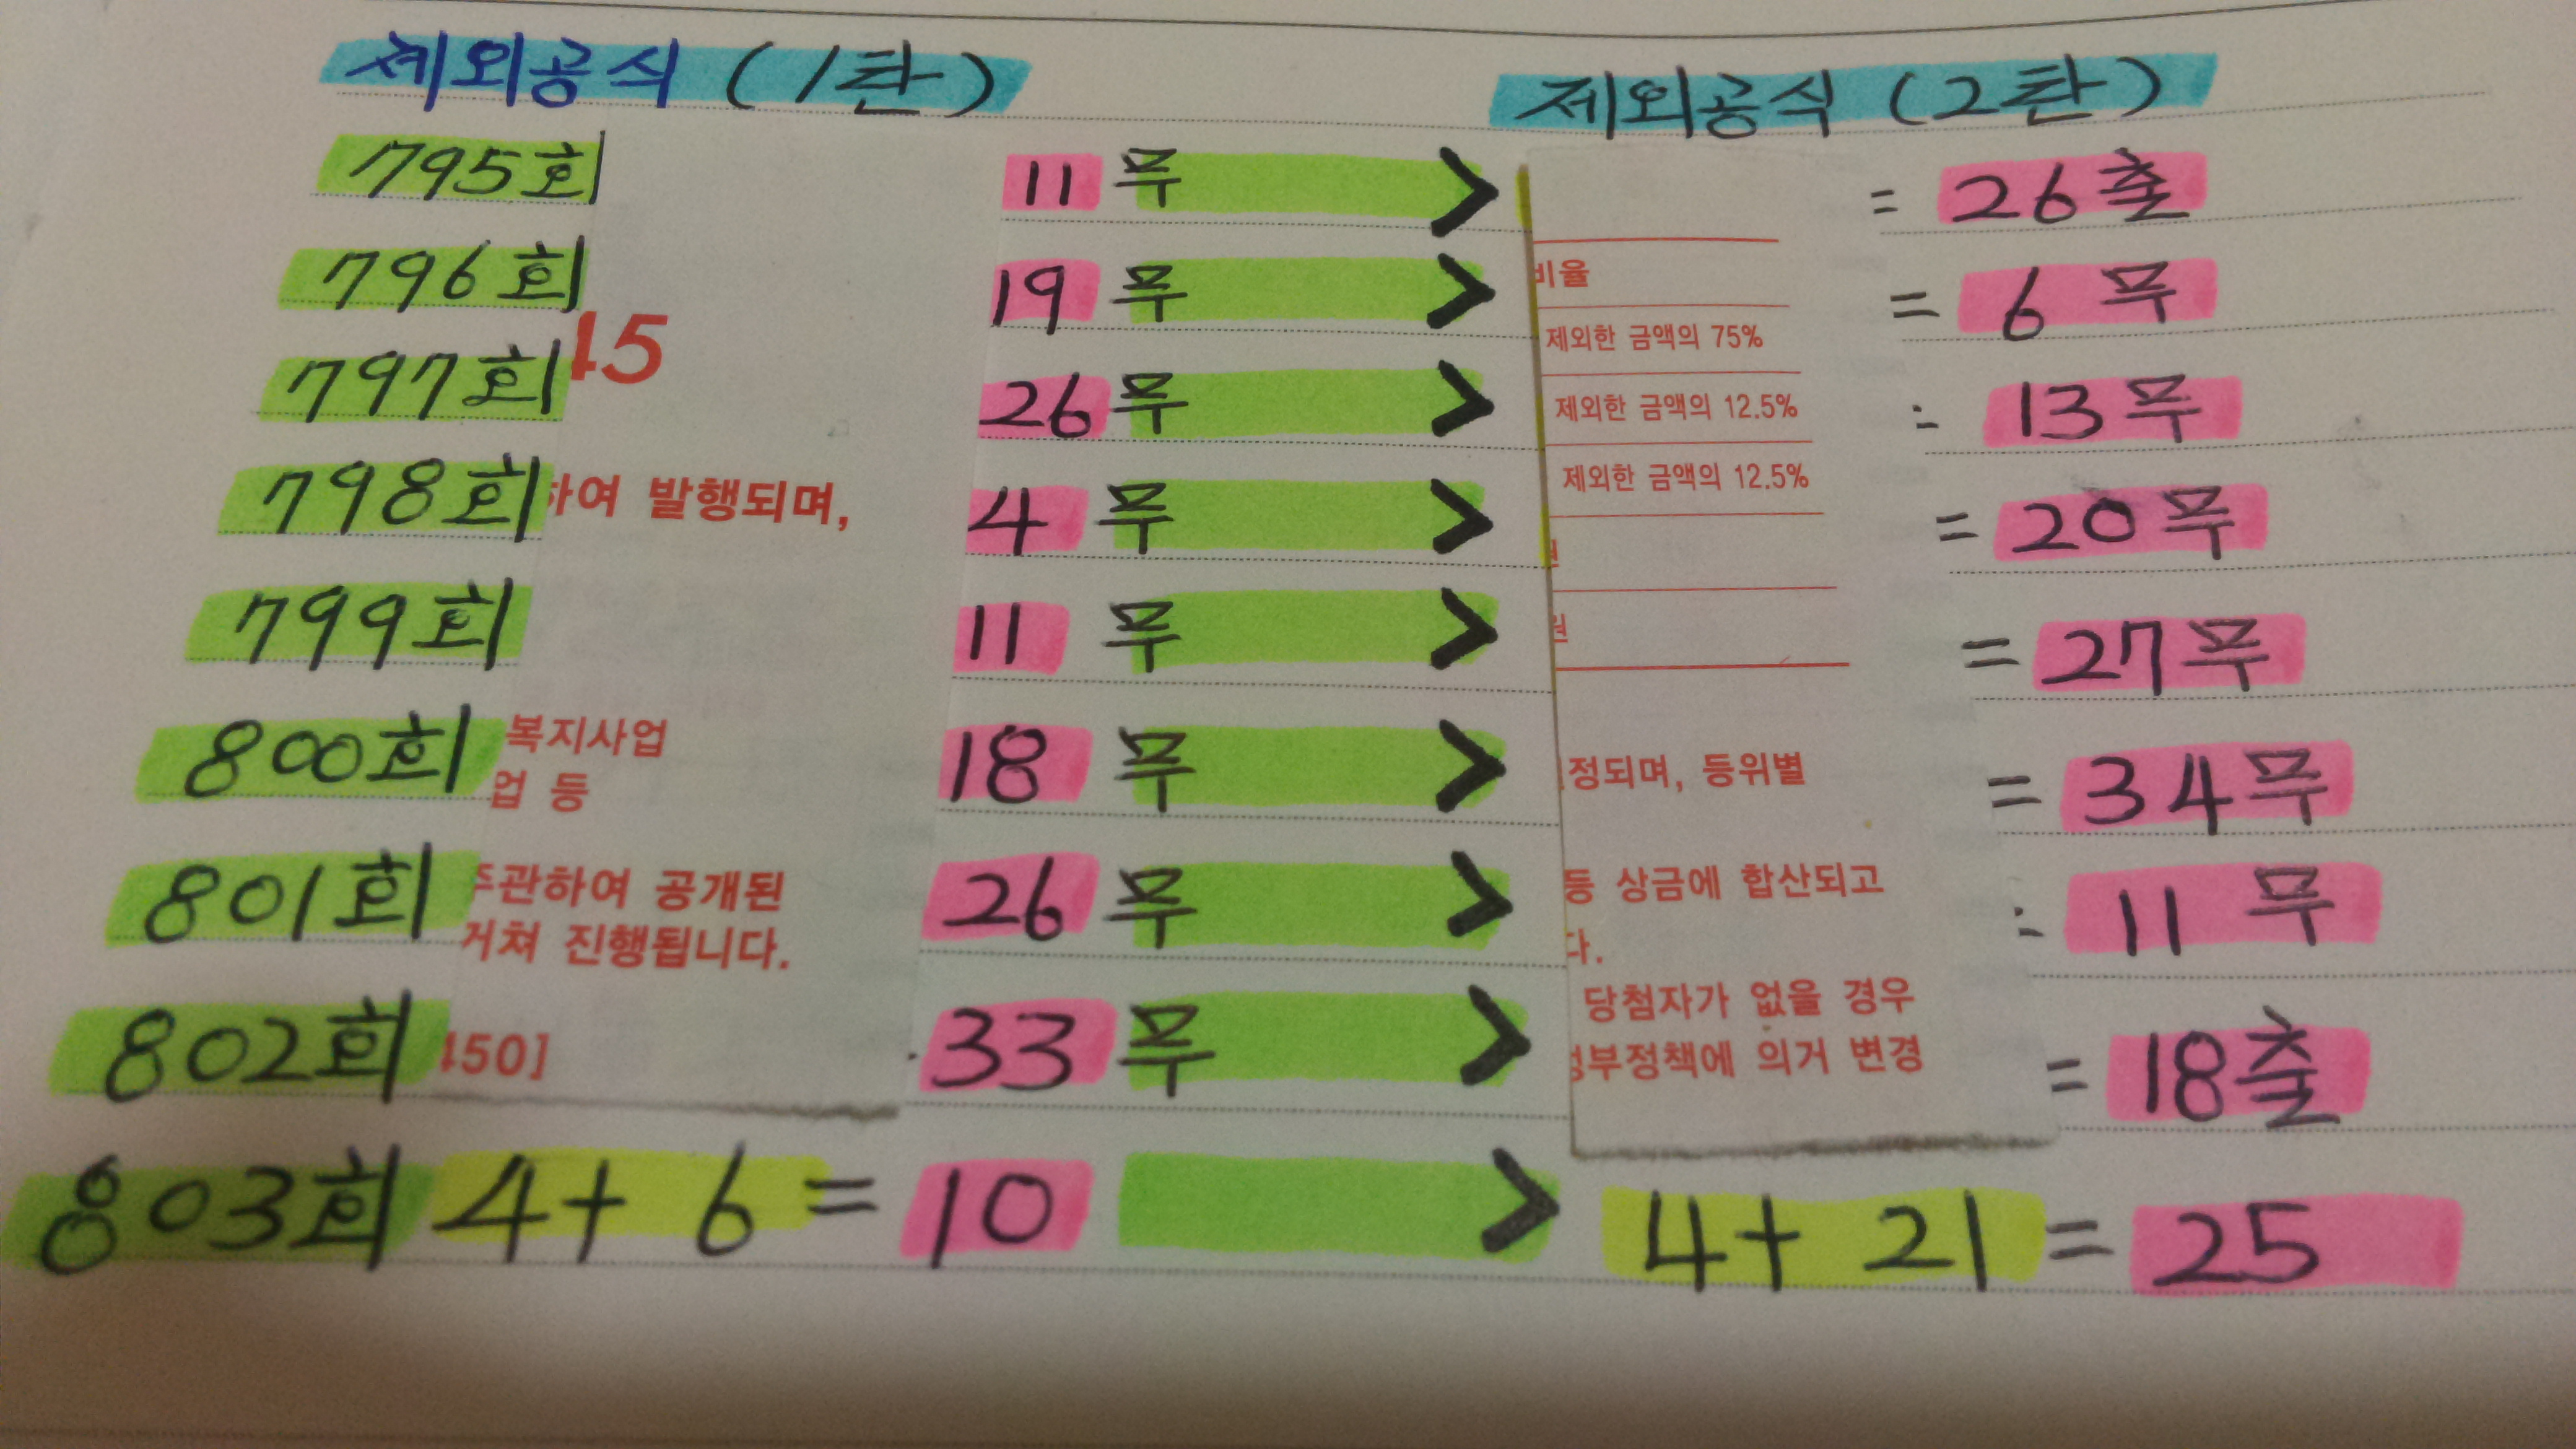 제외공식 (1탄) 제외공식 (2탄)
795회 11 무 > = 26출
796회 19 무 > 비율 = 6 무
45 제외한 금액의 75%
797회 26 무 > 제외한 금액의 12.5% 13무
798회 하여 발행되며, 4 무 > 제외한 금액의 12.5% = 20무
799회 11 무 > 원 = 27무
800회 복지사업 18 무 > 정되며, 등위별 = 34무
업 등
801회 주관하여 공개된 26 무 > 등 상금에 합산되고 11 무
거쳐 진행됩니다. 다.
당첨자가 없을 경우
802회 450] 33 무 > 정부정책에 의거 변경 = 18출
803회 4+ 6 = 10 > 4+ 21 = 25